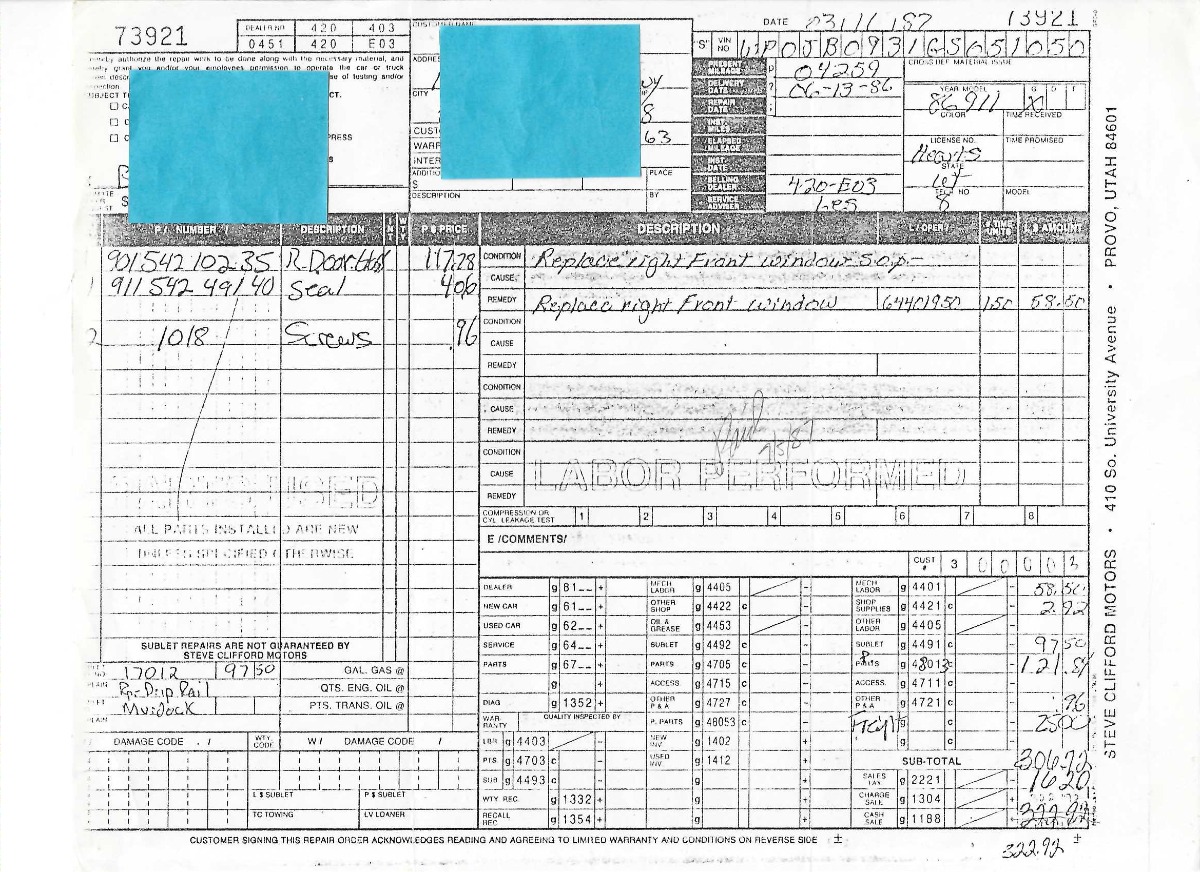 73921
DEALER NO. 420 403
0451 420 E03
DATE 03/16/87 73921
hereby authorize the repair work to be done along with the necessary material, and
grant you and/or your employees permission to operate the car or truck
se of testing and/or
OBJECT T
CT.
PRESS
CUSTOMER NAME
ADDRES
CITY
8
CUST
63
WARR
INTER
S
PLACE
DESCRIPTION BY
"S" VIN NO WP0JB0931GS051050
PRESENT MILEAGE 04259
DELIVERY DATE 06-13-86
REPAIR DATE
INST. MILES
ELAPSED MILEAGE
INST. DATE
SELLING DEALER 420-E03
SERVICE ADVISER Les
CROSS REF. MATERIAL ISSUE
YEAR MODEL G D F
86 911 X
COLOR TIME RECEIVED
LICENSE NO. TIME PROMISED
STATE
TECH NO MODEL
8
P / NUMBER / DESCRIPTION P $ PRICE
90154210235 R.Door 117.28
1 91154249140 Seal 4.06
2 1018 Screws .96
ALL PARTS INSTALLED ARE NEW
UNLESS SPECIFIED OTHERWISE
SUBLET REPAIRS ARE NOT GUARANTEED BY
STEVE CLIFFORD MOTORS
17012 97 50 GAL. GAS @
Rp-Drip Rail QTS. ENG. OIL @
Murdock PTS. TRANS. OIL @
DAMAGE CODE . / WTY. CODE W / DAMAGE CODE /
L $ SUBLET P $ SUBLET
TC TOWING LV LOANER
DESCRIPTION L / OPER / TIME UNITS L $ AMOUNT
CONDITION Replace right Front window S.O.P.-
CAUSE
REMEDY Replace right Front window 64401950 1.50 58.50
CONDITION
CAUSE
REMEDY
CONDITION
CAUSE
REMEDY
CONDITION
CAUSE
REMEDY
Paid
7/8/87
LABOR PERFORMED
COMPRESSION OR CYL LEAKAGE TEST 1 2 3 4 5 6 7 8
E /COMMENTS/
CUST # 3 0 0 0 0 3
DEALER g 81__ + MECH LABOR g 4405 - MECH LABOR g 4401 - 58.50
NEW CAR g 61__ + OTHER SHOP g 4422 c - SHOP SUPPLIES g 4421 c - 2.92
USED CAR g 62__ + OIL & GREASE g 4453 - OTHER LABOR g 4405 -
SERVICE g 64__ + SUBLET g 4492 c - SUBLET g 4491 c - 97.50
PARTS g 67__ + PARTS g 4705 c - PARTS g 48013c - 121.34
g + ACCESS. g 4715 c - ACCESS. g 4711 c -
DIAG g 1352 + OTHER P&A g 4727 c - OTHER P & A g 4721 c - .96
WARRANTY QUALITY INSPECTED BY P. PARTS g 48053 c - Frght g c - 25.00
LBR g 4403 - NEW INV g 1402 + g c
PTS. g 4703 c - USED INV g 1412 + SUB-TOTAL 306.72
SUB g 4493 c - g SALES TAX g 2221 - 16.20
WTY REC g 1332 + g CHARGE SALE g 1304 +
RECALL REC g 1354 + g CASH SALE g 1188 +
CUSTOMER SIGNING THIS REPAIR ORDER ACKNOWLEDGES READING AND AGREEING TO LIMITED WARRANTY AND CONDITIONS ON REVERSE SIDE ±
322.92
STEVE CLIFFORD MOTORS • 410 So. University Avenue • PROVO, UTAH 84601